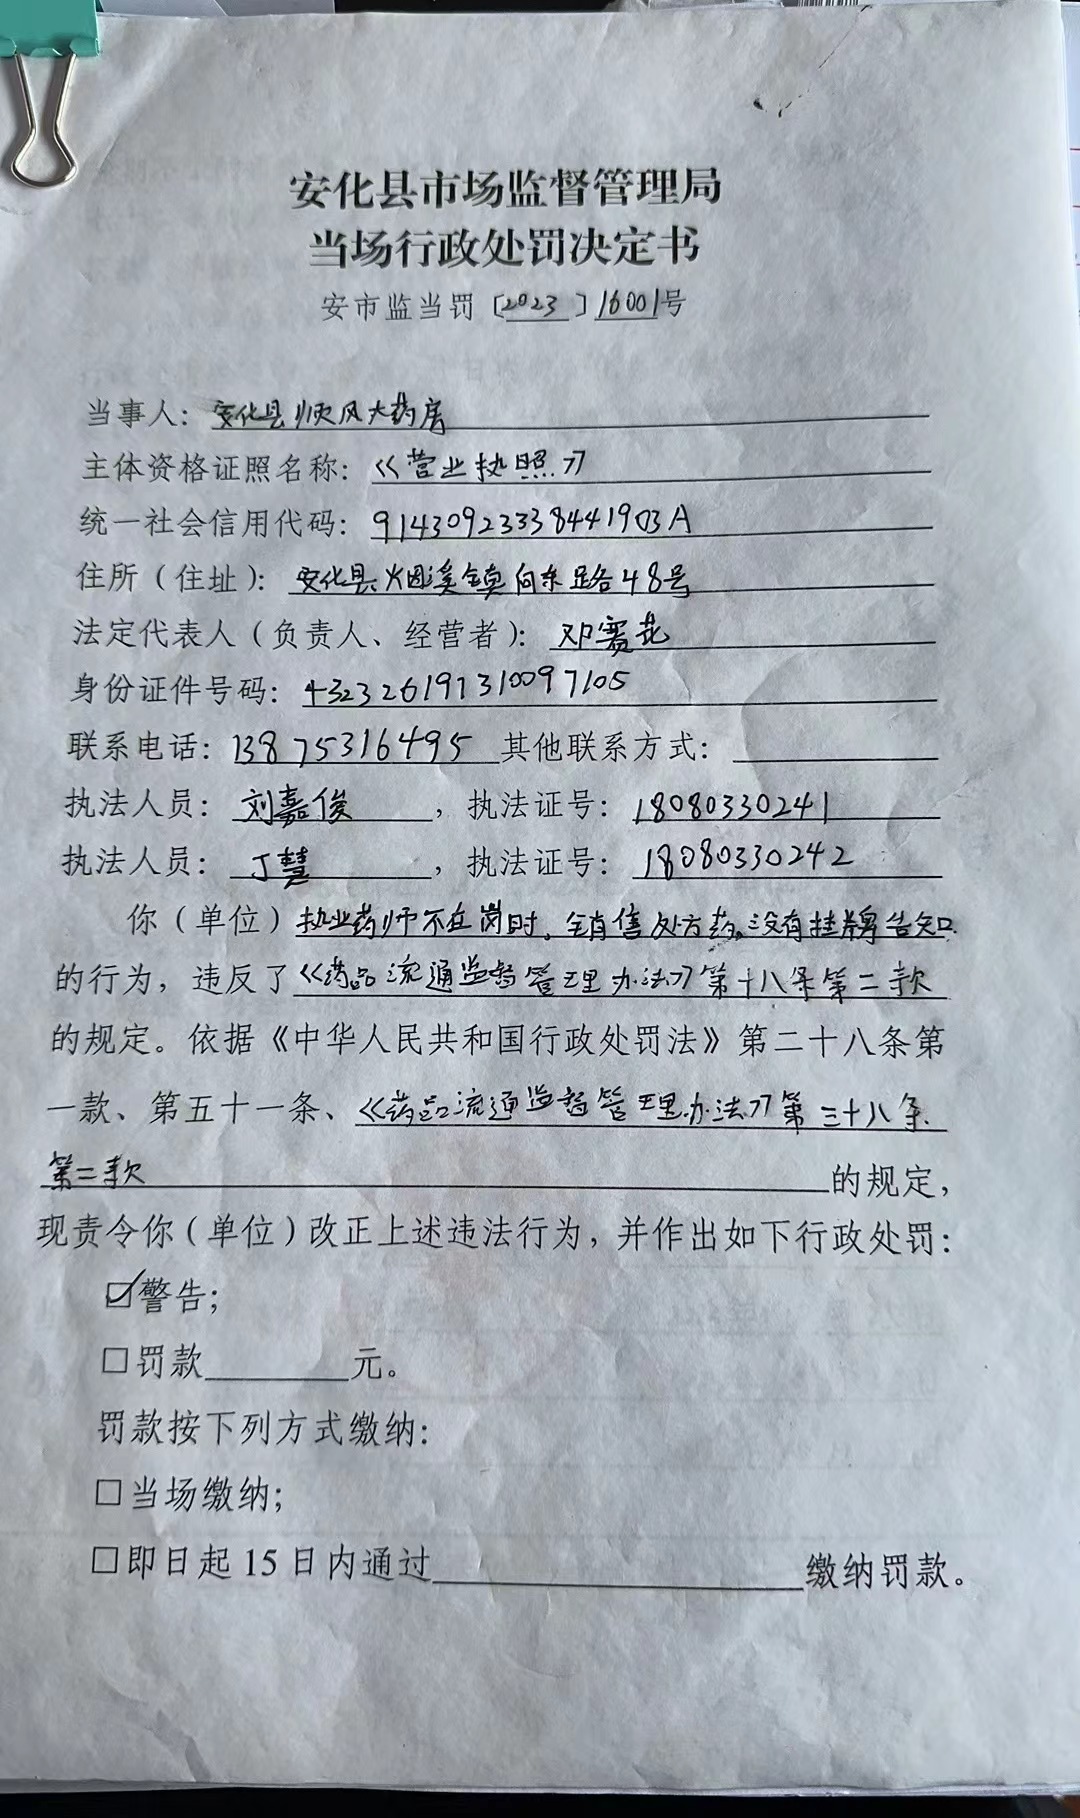 安化县市场监督管理局
当场行政处罚决定书
安市监当罚〔2023〕16001号
当事人：安化县顺风大药房
主体资格证照名称：《营业执照》
统一社会信用代码：91430923338441903A
住所（住址）：安化县烟溪镇向东路48号
法定代表人（负责人、经营者）：邓赛花
身份证件号码：432326197310097105
联系电话：13875316495 其他联系方式：
执法人员：刘嘉俊，执法证号：18080330241
执法人员：丁慧，执法证号：18080330242
你（单位）执业药师不在岗时，销售处方药，没有挂牌告知
的行为，违反了《药品流通监督管理办法》第十八条第二款
的规定。依据《中华人民共和国行政处罚法》第二十八条第
一款、第五十一条、《药品流通监督管理办法》第三十八条
第二款的规定，
现责令你（单位）改正上述违法行为，并作出如下行政处罚：
☑警告；
□罚款 元。
罚款按下列方式缴纳：
□当场缴纳；
□即日起15日内通过 缴纳罚款。